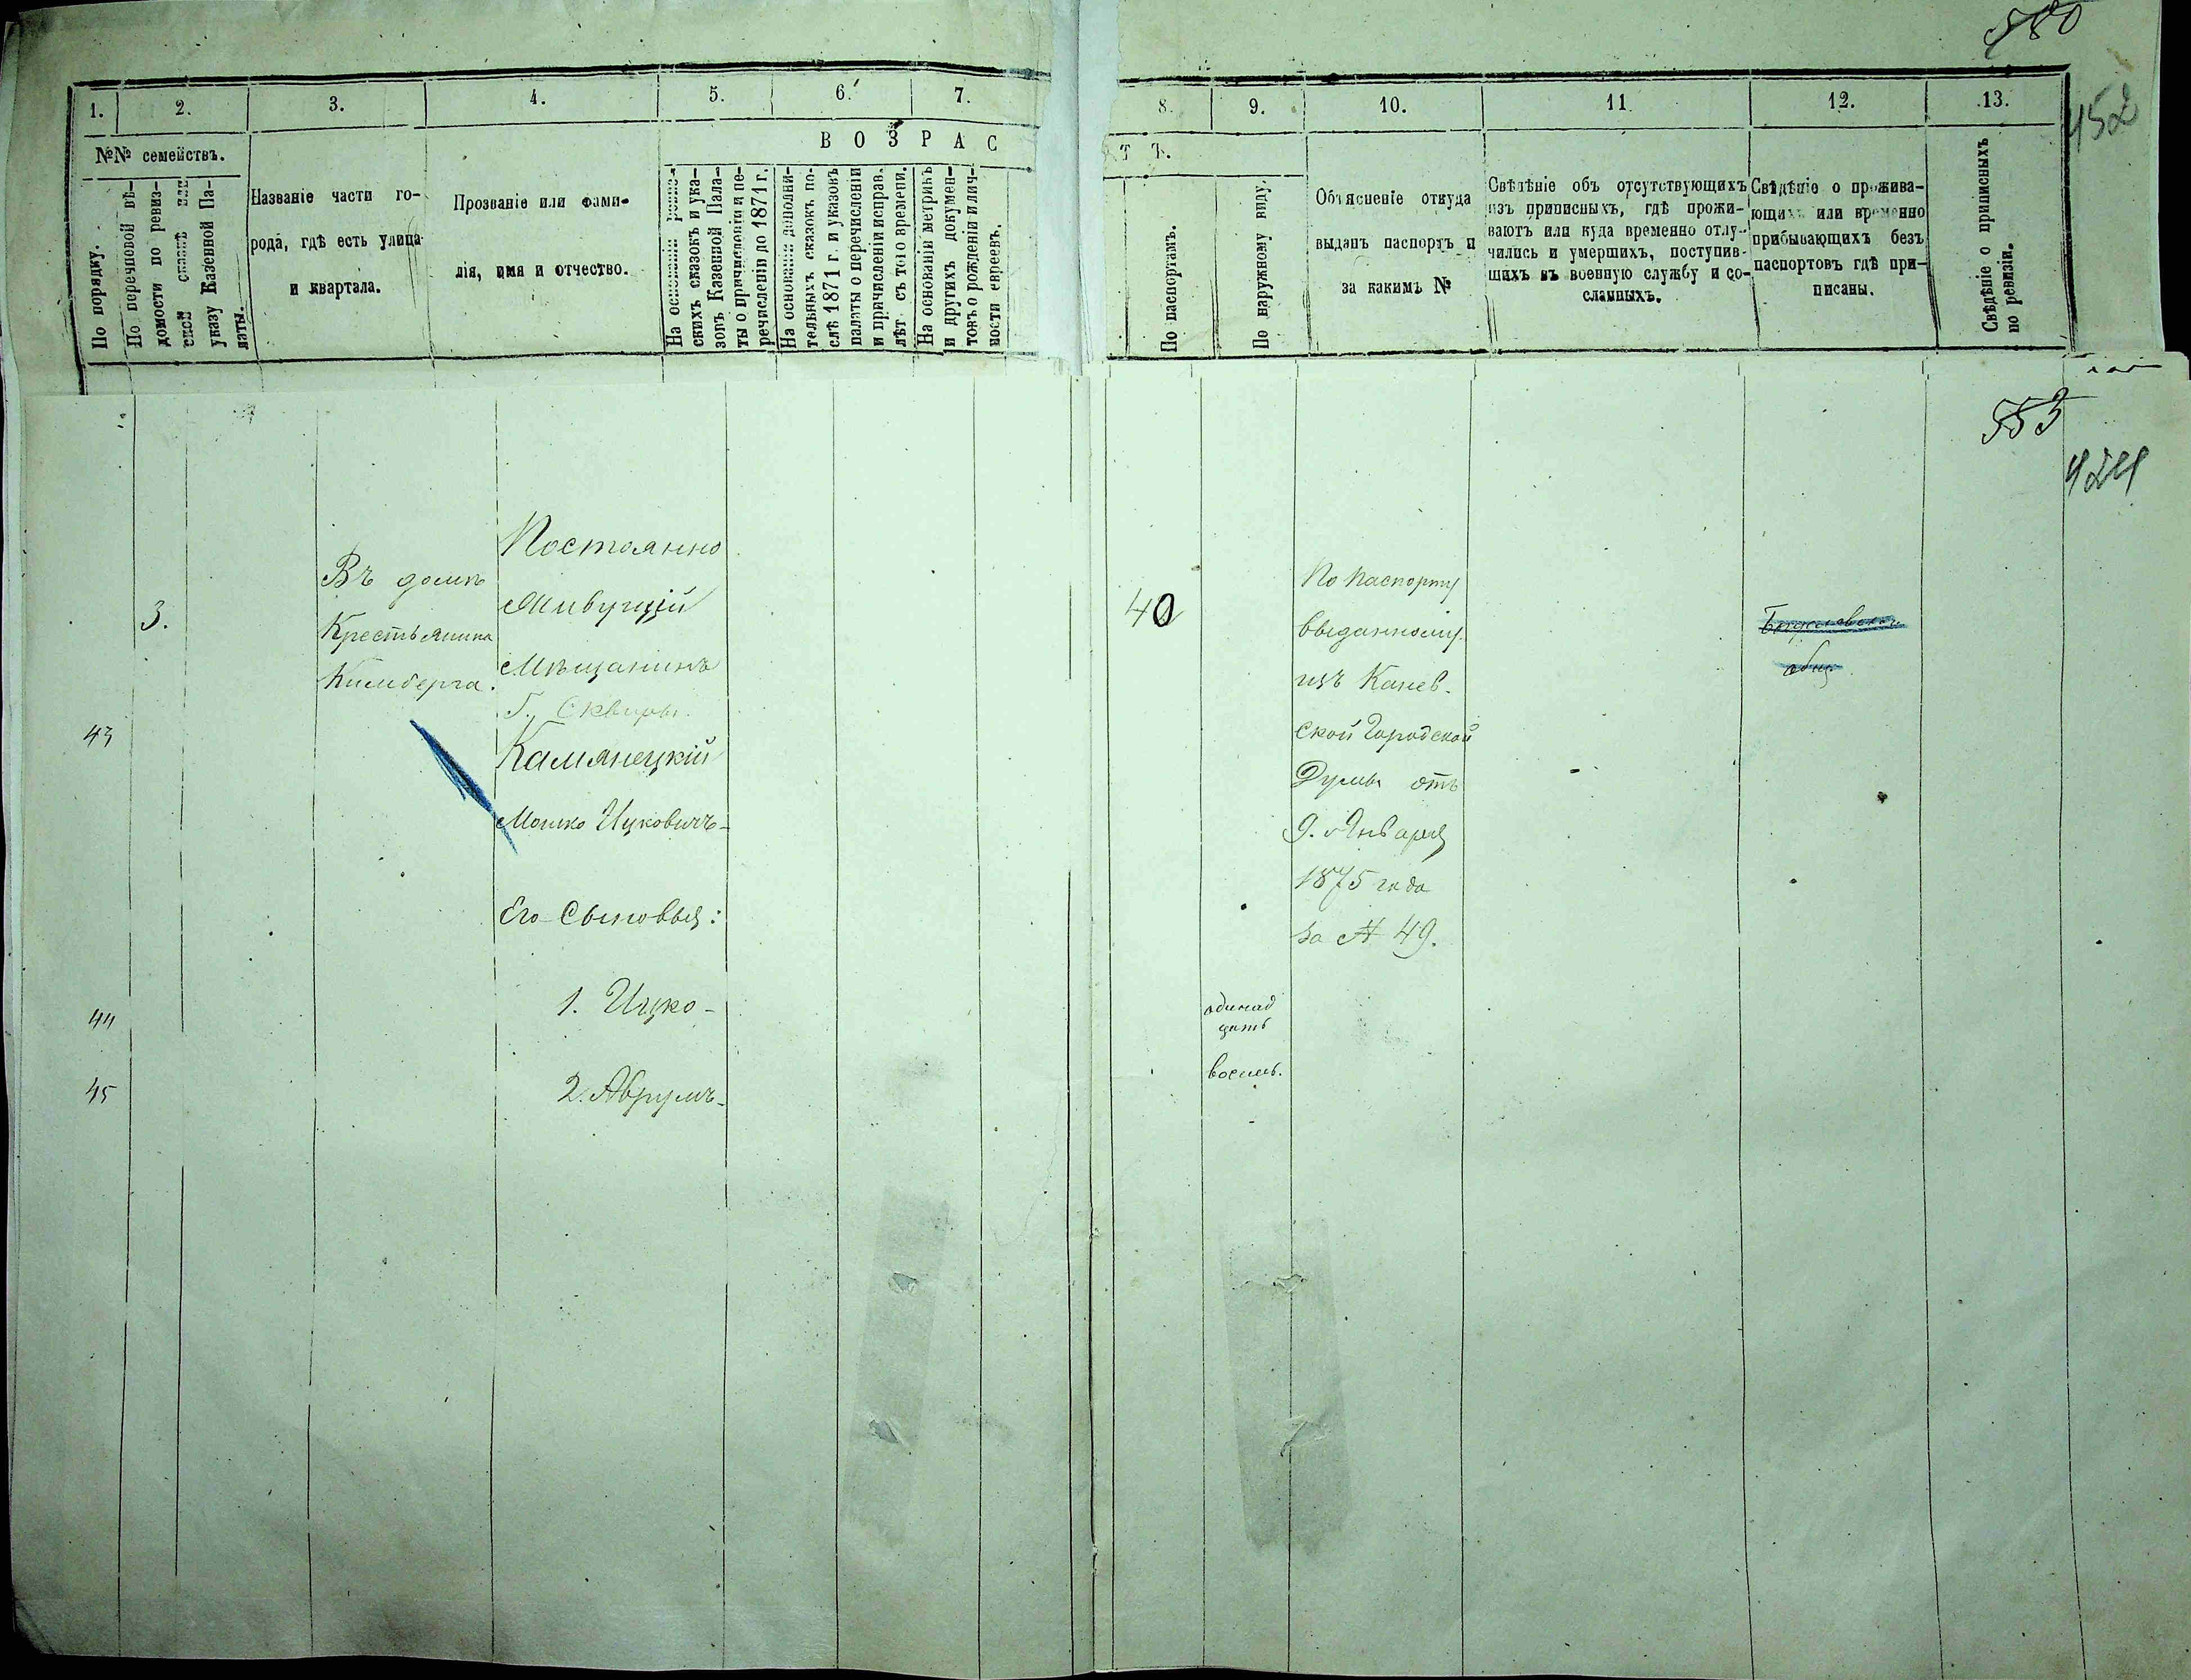 580
452
1. 2. 3. 4. 5. 6. 7. 8. 9. 10. 11. 12. 13.
№№ семействъ.
В О З Р А С Т Ъ.
По порядку.
По перечповой вѣ-
домости по ревиз-
ской сказкѣ или
указу Казенной Па-
латы.
Названіе части го-
рода, гдѣ есть улица
и квартала.
Прозваніе или фами-
лія, имя и отчество.
На основаніи ревиз-
скихъ сказокъ и ука-
зовъ Казенной Пала-
ты о причисленіи и пе-
речисленіи до 1871 г.
На основаніи дополни-
тельныхъ сказокъ по-
слѣ 1871 г. и указовъ
палаты о перечисленіи
и причисленіи исправ.
лѣт съ того времени.
На основаніи метрикъ
и другихъ докумен-
товъ о рожденіи и лич-
ности евреевъ.
По паспортамъ.
По наружному виду.
Объясненіе откуда
выданъ паспортъ и
за какимъ №
Свѣдѣніе объ отсутствующихъ
изъ приписныхъ, гдѣ прожи-
ваютъ или куда временно отлу-
чились и умершихъ, поступив-
шихъ въ военную службу и со-
сланныхъ.
Свѣдѣніе о прожива-
ющихъ или временно
прибывающихъ безъ
паспортовъ гдѣ при-
писаны.
Свѣдѣніе о приписныхъ
по ревизіи.
553
424
3.
Въ домѣ
Крестьянина
Кимберга.
Постоянно
Живущій
Мѣщанинъ
Г. Сквиры.
43
Камянецкій
Мошко Ицковичъ-
Его Сыновья:
44
1. Ицко-
45
2. Аврумъ-
40
одинад
цать
восемь.
По паспорту
выданному
изъ Канев-
ской Городской
Думы отъ
9. Января
1875 года
за № 49.
общ.